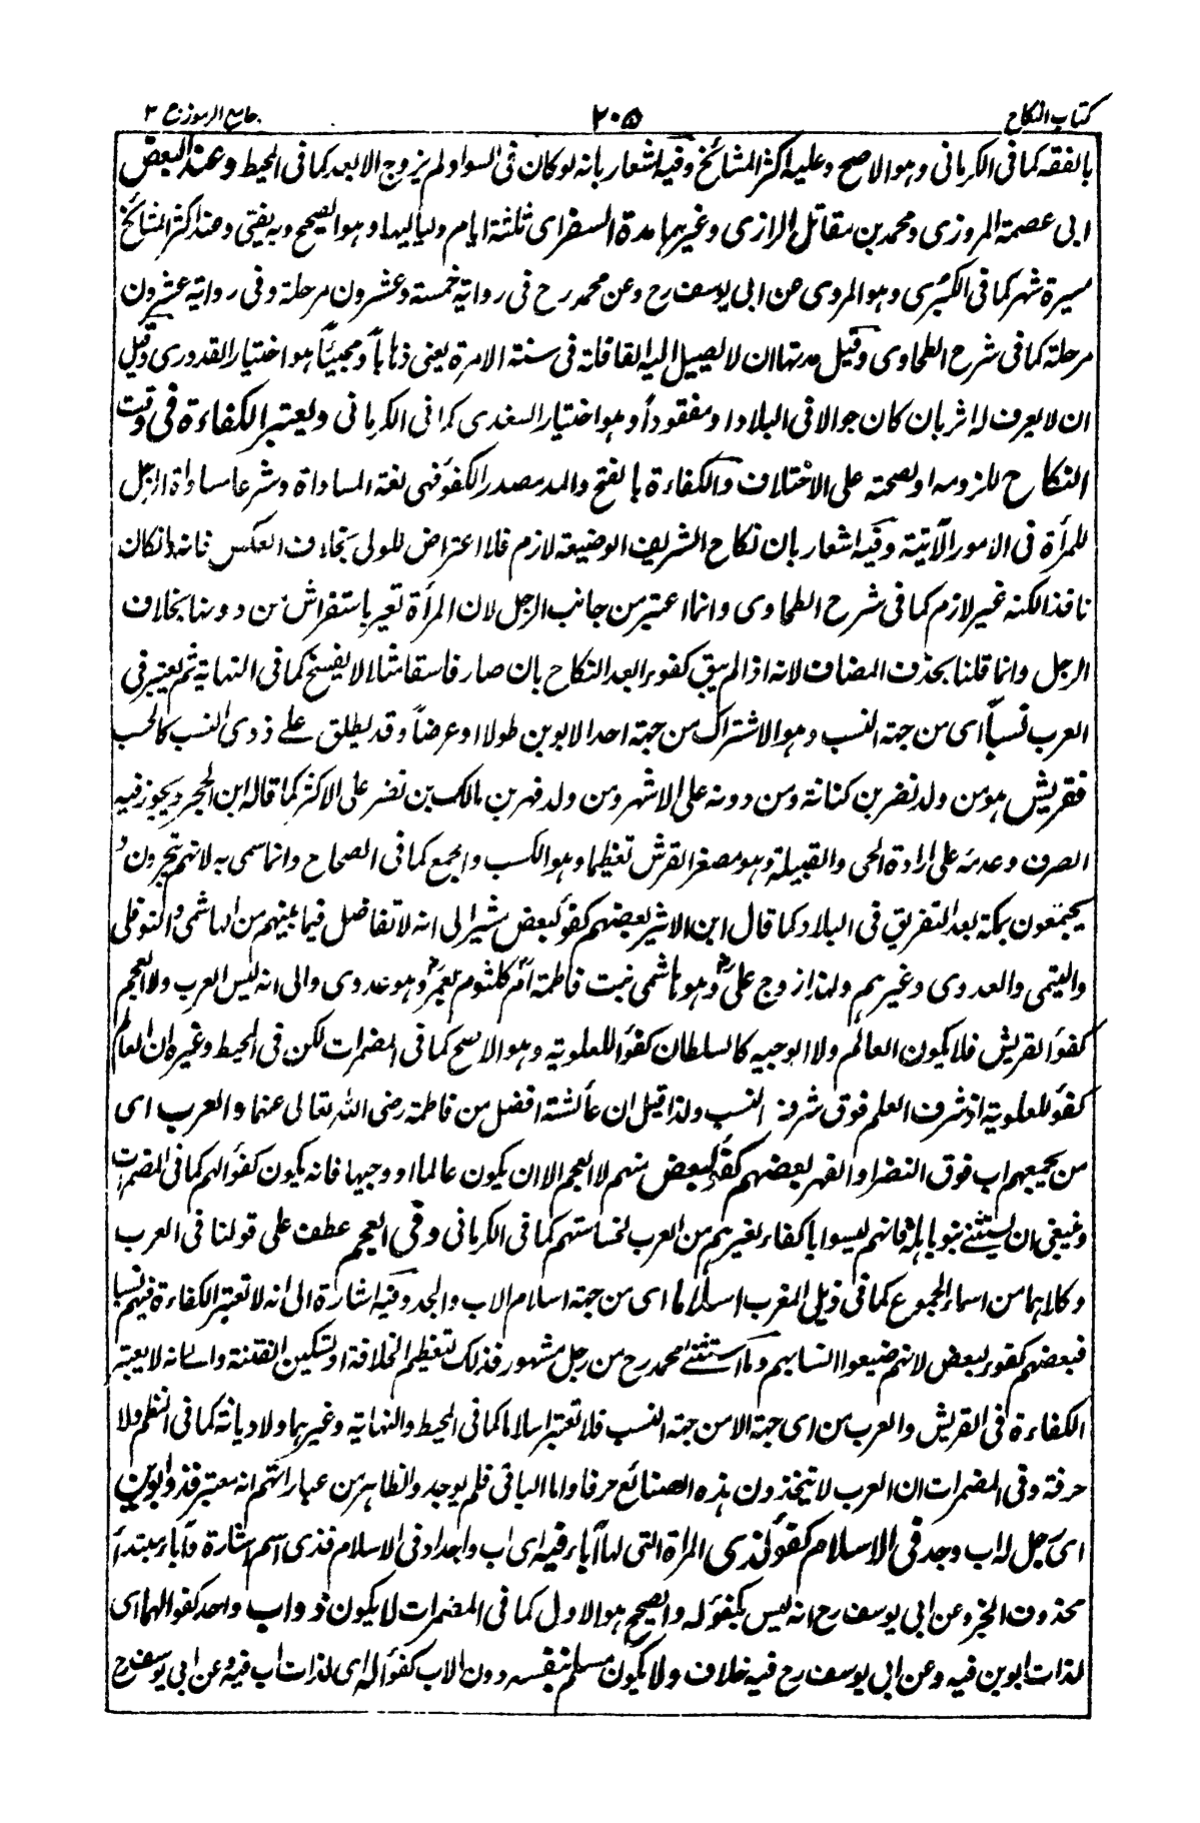 كتاب النكاح
٢٠٥
جامع الرموز ج ٢
بالفقه كما فى الكرمانى وهو الاصح وعليه اكثر المشائخ وفيه اشعار بانه لو كان فى السواد لم يزوج الابعد كما فى المحيط وعند البعض
ابى عصمة المروزى ومحمد بن مقاتل الرازى وغيرهما مدة السفر اى ثلثة ايام ولياليها وهو الصحيح وبه يفتى وعند اكثر المشائخ
مسيرة شهر كما فى الكبرى وهو المروى عن ابى يوسف رح وعن محمد رح فى رواية خمسة وعشرون مرحلة وفى رواية عشرون
مرحلة كما فى شرح الطحاوى وقيل مدتها ان لا يصل اليه القافلة فى سنة الا مرة يعنى ذهابا ومجيئا هو اختيار القدورى وقيل
ان لا يعرف له اثر بان كان جوالا فى البلاد او مفقودا وهو اختيار السغدى كما فى الكرمانى ويعتبر الكفاءة فى وقت
النكاح للزومه او لصحته على الاختلاف والكفاءة بالفتح والمد مصدر الكفؤ فهى لغة المساواة وشرعا مساواة الرجل
للمرأة فى الامور الآتية وفيه اشعار بان نكاح الشريف الوضيعة لازم فلا اعتراض للولى بخلاف العكس فانه وانكان
نافذا لكنه غير لازم كما فى شرح الطحاوى وانما اعتبر من جانب الرجل لان المرأة تعير باستفراش من دونها بخلاف
الرجل وانما قلنا بحذف المضاف لانه اذا لم يبق كفوء ابعد النكاح بان صار فاسقا مثلا لا يفسخ كما فى النهاية ثم يعتبر فى
العرب نسبا اى من جهة النسب وهو الاشتراك من جهة احد الابوين طولا او عرضا وقد يطلق على ذوى النسب كالحسب
فقريش هو من ولد نضر بن كنانة ومن دونه على الاشهر ومن ولد فهر بن مالك بن نضر على الاكثر كما قاله ابن الحجر ويجوز فيه
الصرف وعدمه على ارادة الحى والقبيلة وهو مصغر القرش تعظيما وهو الكسب والجمع كما فى الصحاح وانما سمى به لانهم يتجرون و
يجتمعون بمكة بعد التفريق فى البلاد كما قال ابن الاثير بعضهم كفؤ لبعض مشيرا الى انه لا تفاضل فيما بينهم من الهاشمى والنوفلى
والتيمى والعدوى وغيرهم ولهذا زوج على رض وهو هاشمى بنت فاطمة ام كلثوم بعمر رض وهو عدوى والى انه ليس العرب ولا العجم
كفؤا لقريش فلا يكون العالم ولا الوجيه كالسلطان كفؤا للعلوية وهو الاصح كما فى المضمرات لكن فى المحيط وغيره ان العالم
كفؤ للعلوية اذ شرف العلم فوق شرف النسب ولذا قيل ان عائشة افضل من فاطمة رضى الله تعالى عنهما والعرب اى
من يجمعهم اب فوق النضر او الفهر بعضهم كفؤ لبعض منهم لا العجم الا ان يكون عالما او وجيها فانه يكون كفؤا لهم كما فى المضمرات
وينبغى ان يستثنى بنو باهلة فانهم ليسوا باكفاء لغيرهم من العرب لخساستهم كما فى الكرمانى وفى العجم عطف على قولنا فى العرب
وكلاهما من اسماء الجموع كما فى ذيل المغرب اسلاما اى من جهة اسلام الاب والجد وفيه اشارة الى انه لا تعتبر الكفاءة فيهم نسبا
فبعضهم كفوء لبعض لانهم ضيعوا انسابهم وما استثنى محمد رح من رجل مشهور فذلك لتعظيم الخلافة او تسكين الفتنة والى انه لا يعتبر
الكفاءة فى القريش والعرب من اى جهة الا من جهة النسب فلا تعتبر اسلاما كما فى المحيط والنهاية وغيرهما ولا ديانة كما فى النظم ولا
حرفة وفى المضمرات ان العرب لا يتخذون هذه الصنائع حرفا واما الباقى فلم يوجد والظاهر من عباراتهم انه معتبر فذو ابوين
اى رجل له اب وجد فى الاسلام كفؤ لذى المرأة التى لها آباء فيه اى اب واجداد فى الاسلام فذى اسم اشارة وآباء مبتدأ
محذوف الخبر وعن ابى يوسف رح انه ليس بكفؤ له والصحيح هو الاول كما فى المضمرات لا يكون ذو اب واحد كفؤا لها اى
لذات ابوين فيه وعن ابى يوسف رح فيه خلاف ولا يكون مسلم بنفسه دون الاب كفؤا له اى لذات اب فيه وعن ابى يوسف رح